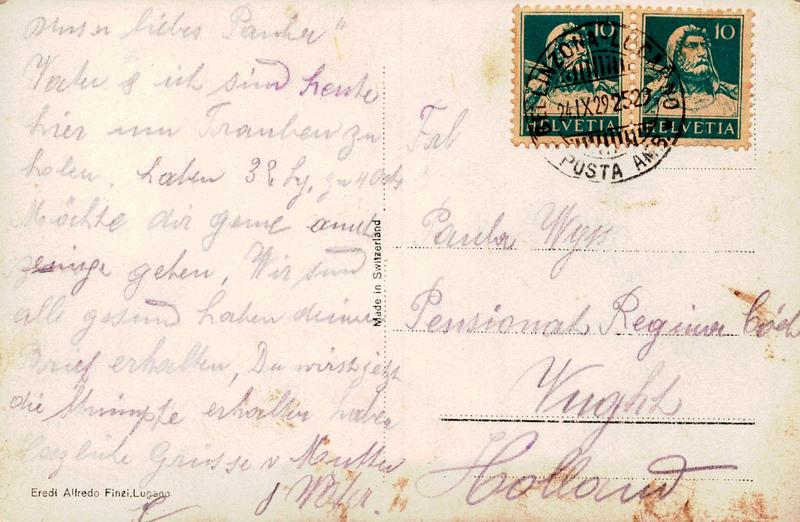 Unser liebes Paula"
Vater & ich sind heute
hier um Trauben zu
holen, haben 32 kg. zu 40 cts
Möchte dir gerne auch
geben, Wir sind
alle gesund haben deinen
Brief erhalten, Du wirst jetzt
die Strümpfe erhalten haben
Herzliche Grüsse v Mutter
& Vater.
Eredi Alfredo Finzi, Lugano
Made in Switzerland
10 10
HELVETIA HELVETIA
BELLINZONA-LOCARNO
24.IX.29
POSTA AMB.
Frl
Paula Wyss
Pensionat Regina Coeli
Vught
Holland